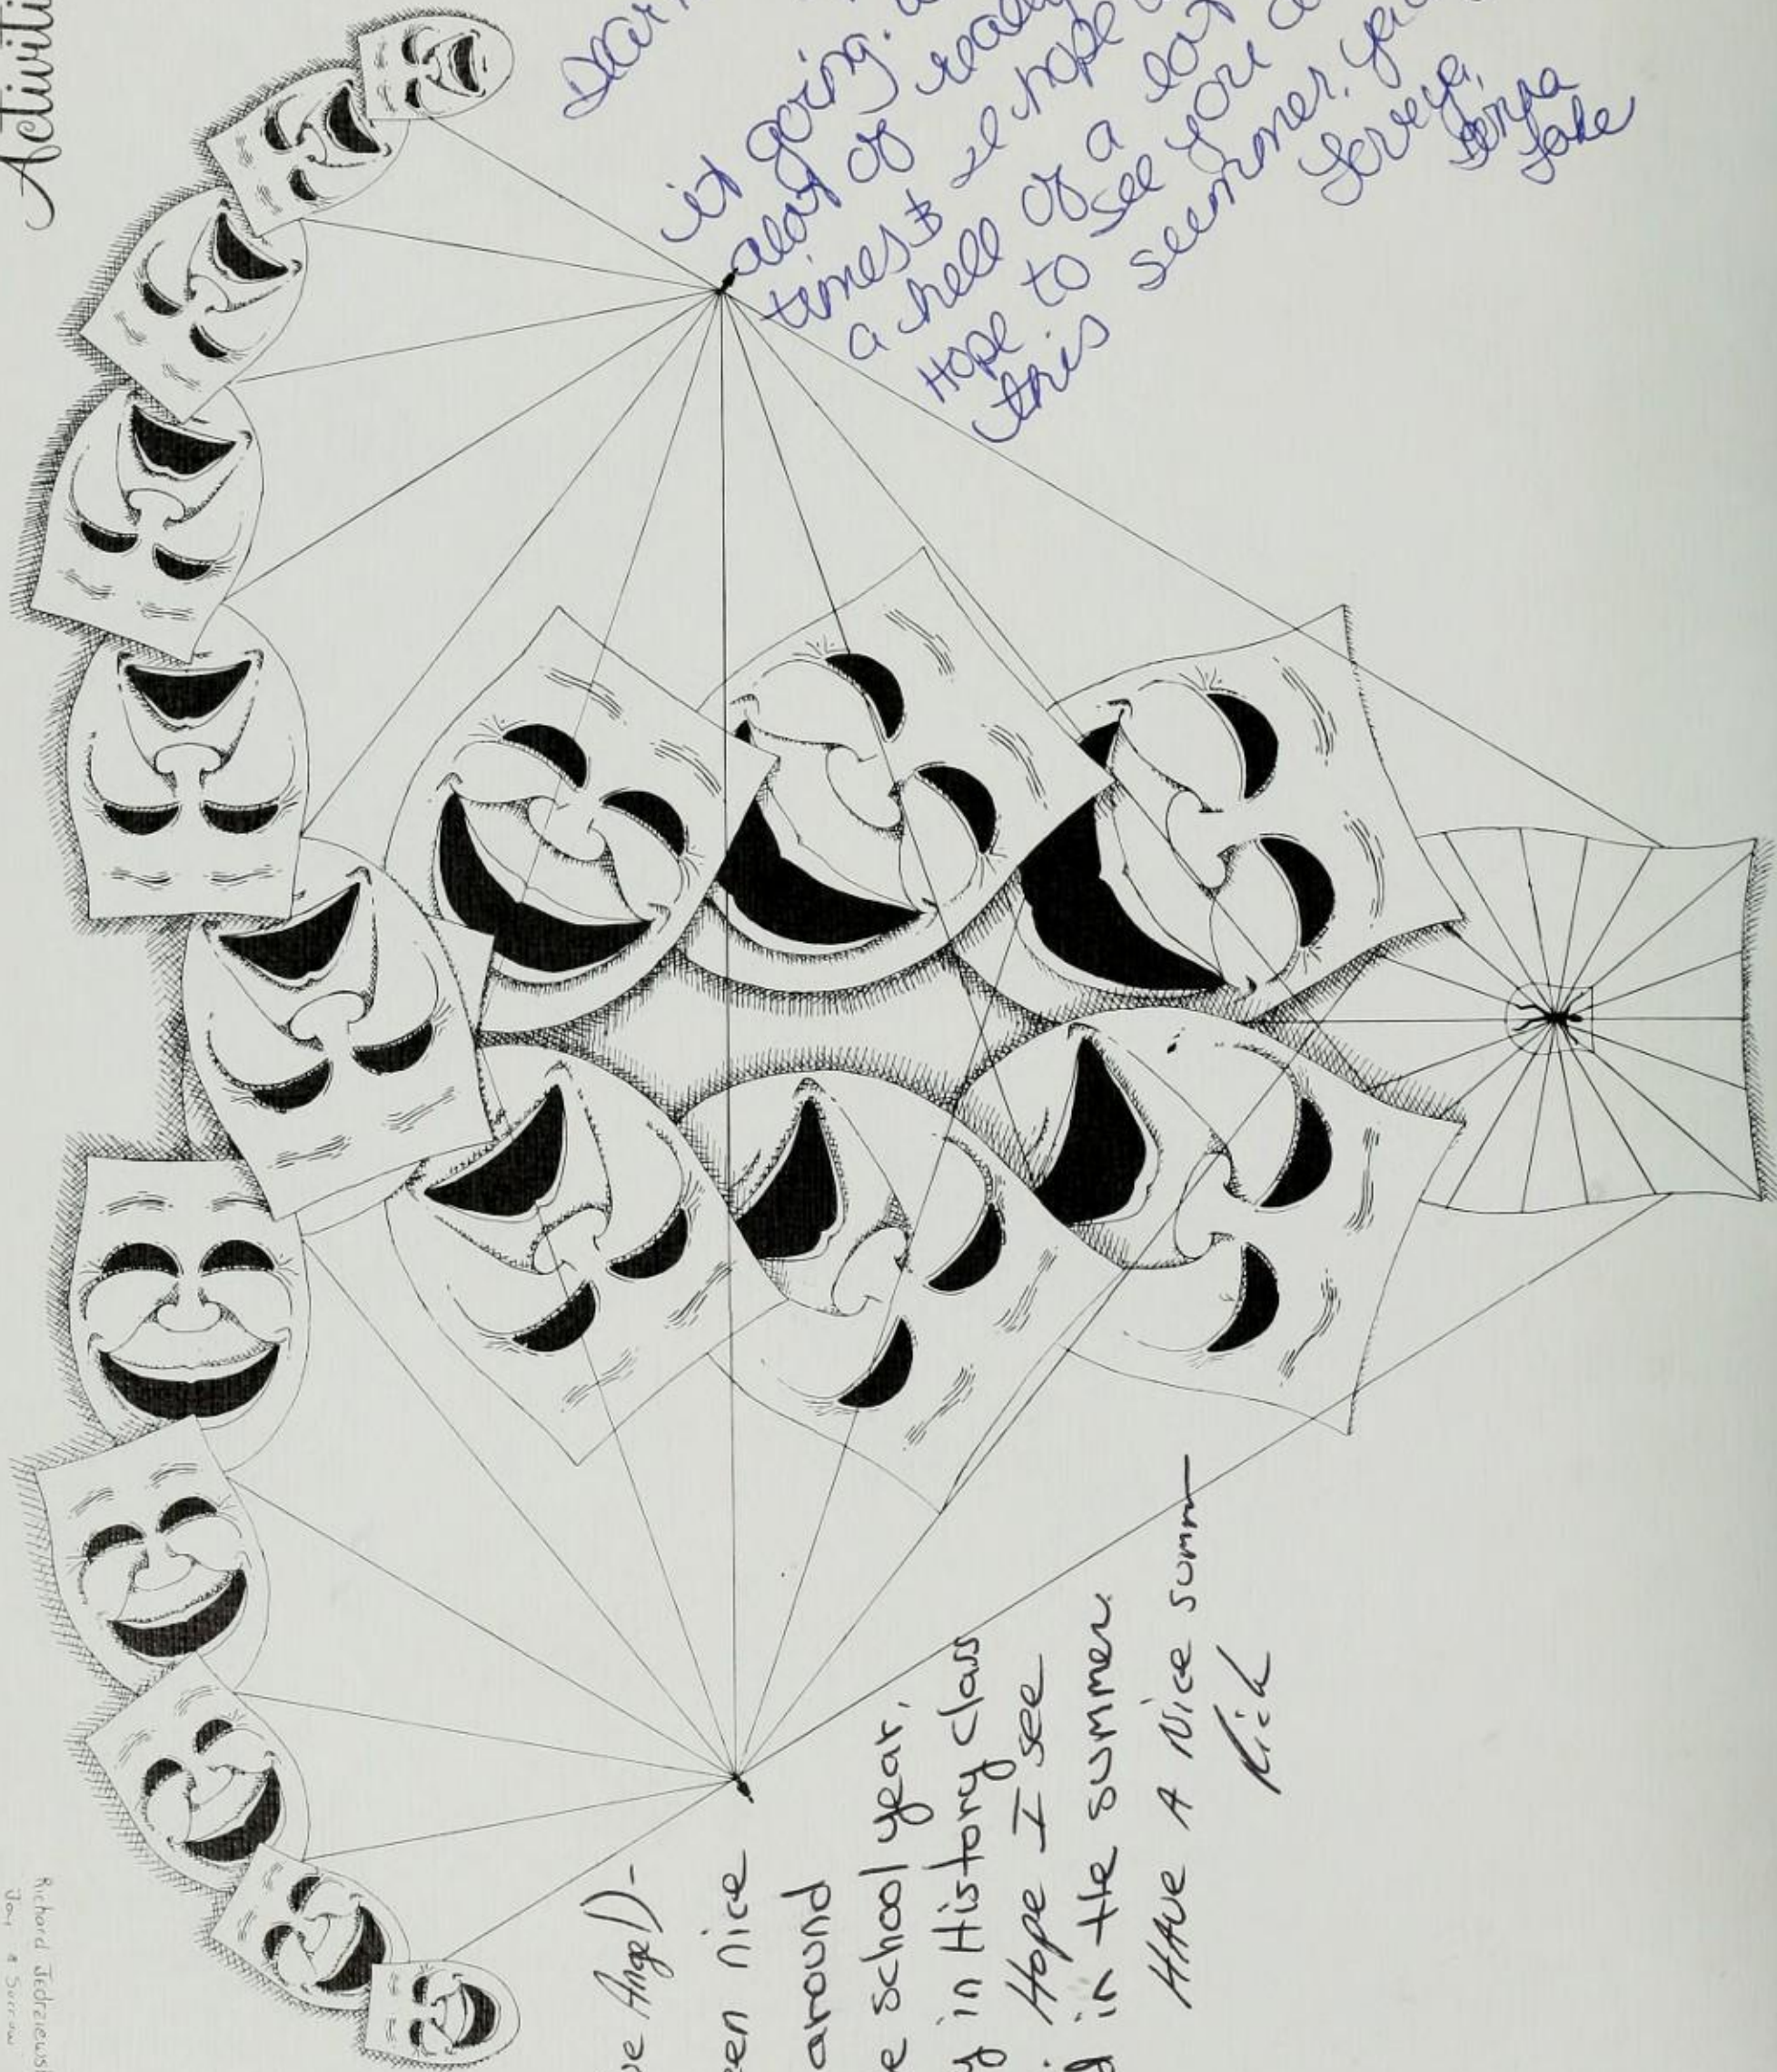 Activiti
Dear
it going.
alot of really
times & I hope
a hell of a lot
Hope to see you
this summer.
Love ya,
Donna
Jake
ve Angel)-
een nice
around
e school year,
y in History class
Hope I see
d in the summer.
HAVE A Nice summ
Rick
Richard Jedrziewsk
Joy & Sorrow